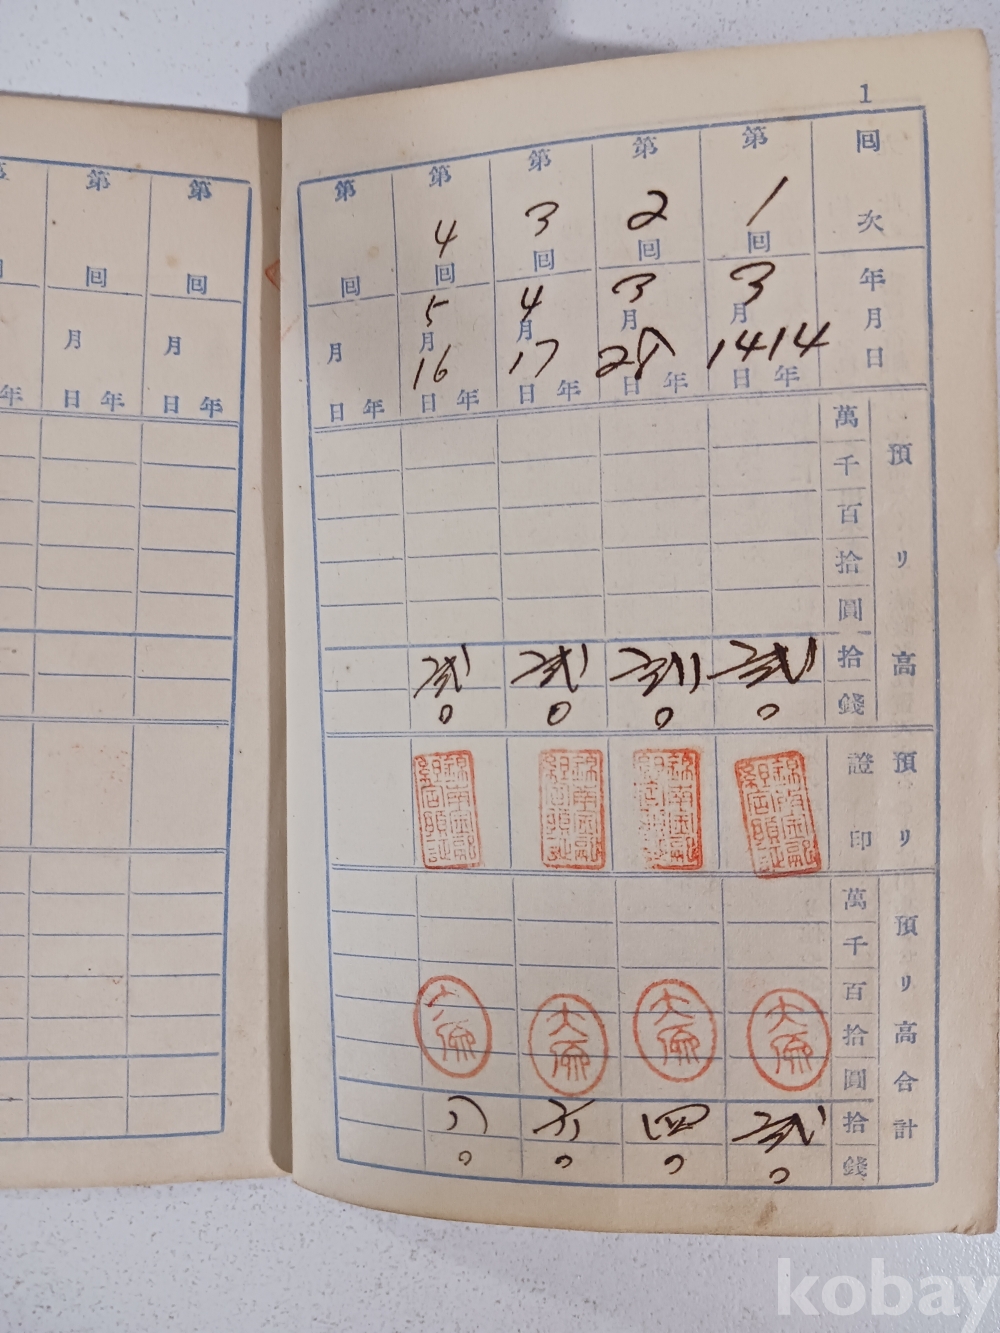 1
回次
年月日
預リ高
萬
千
百
拾
圓
拾
錢
預リ證印
預リ高合計
萬
千
百
拾
圓
拾
錢
第1回
3月14日14年
貳
0
大
貳
0
第2回
3月28日年
貳
0
大
四
0
第3回
4月17日年
貳
0
大
六
0
第4回
5月16日年
貳
0
大
八
0
第 回
月 日 年
第 回
月 日 年
第 回
月 日 年
第 回
年
kobay